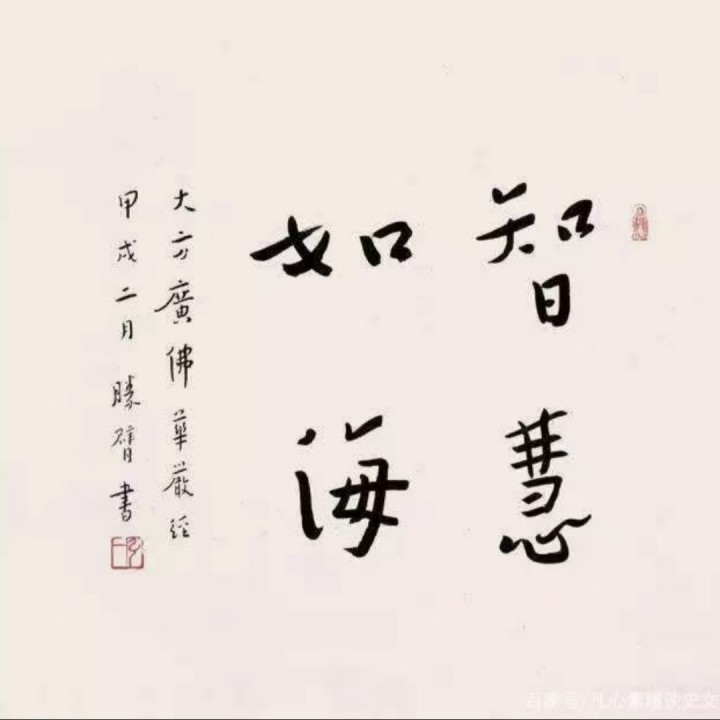 智慧
如海
大方廣佛華嚴經
甲戌二月勝書
百家号/凡心素谈史文